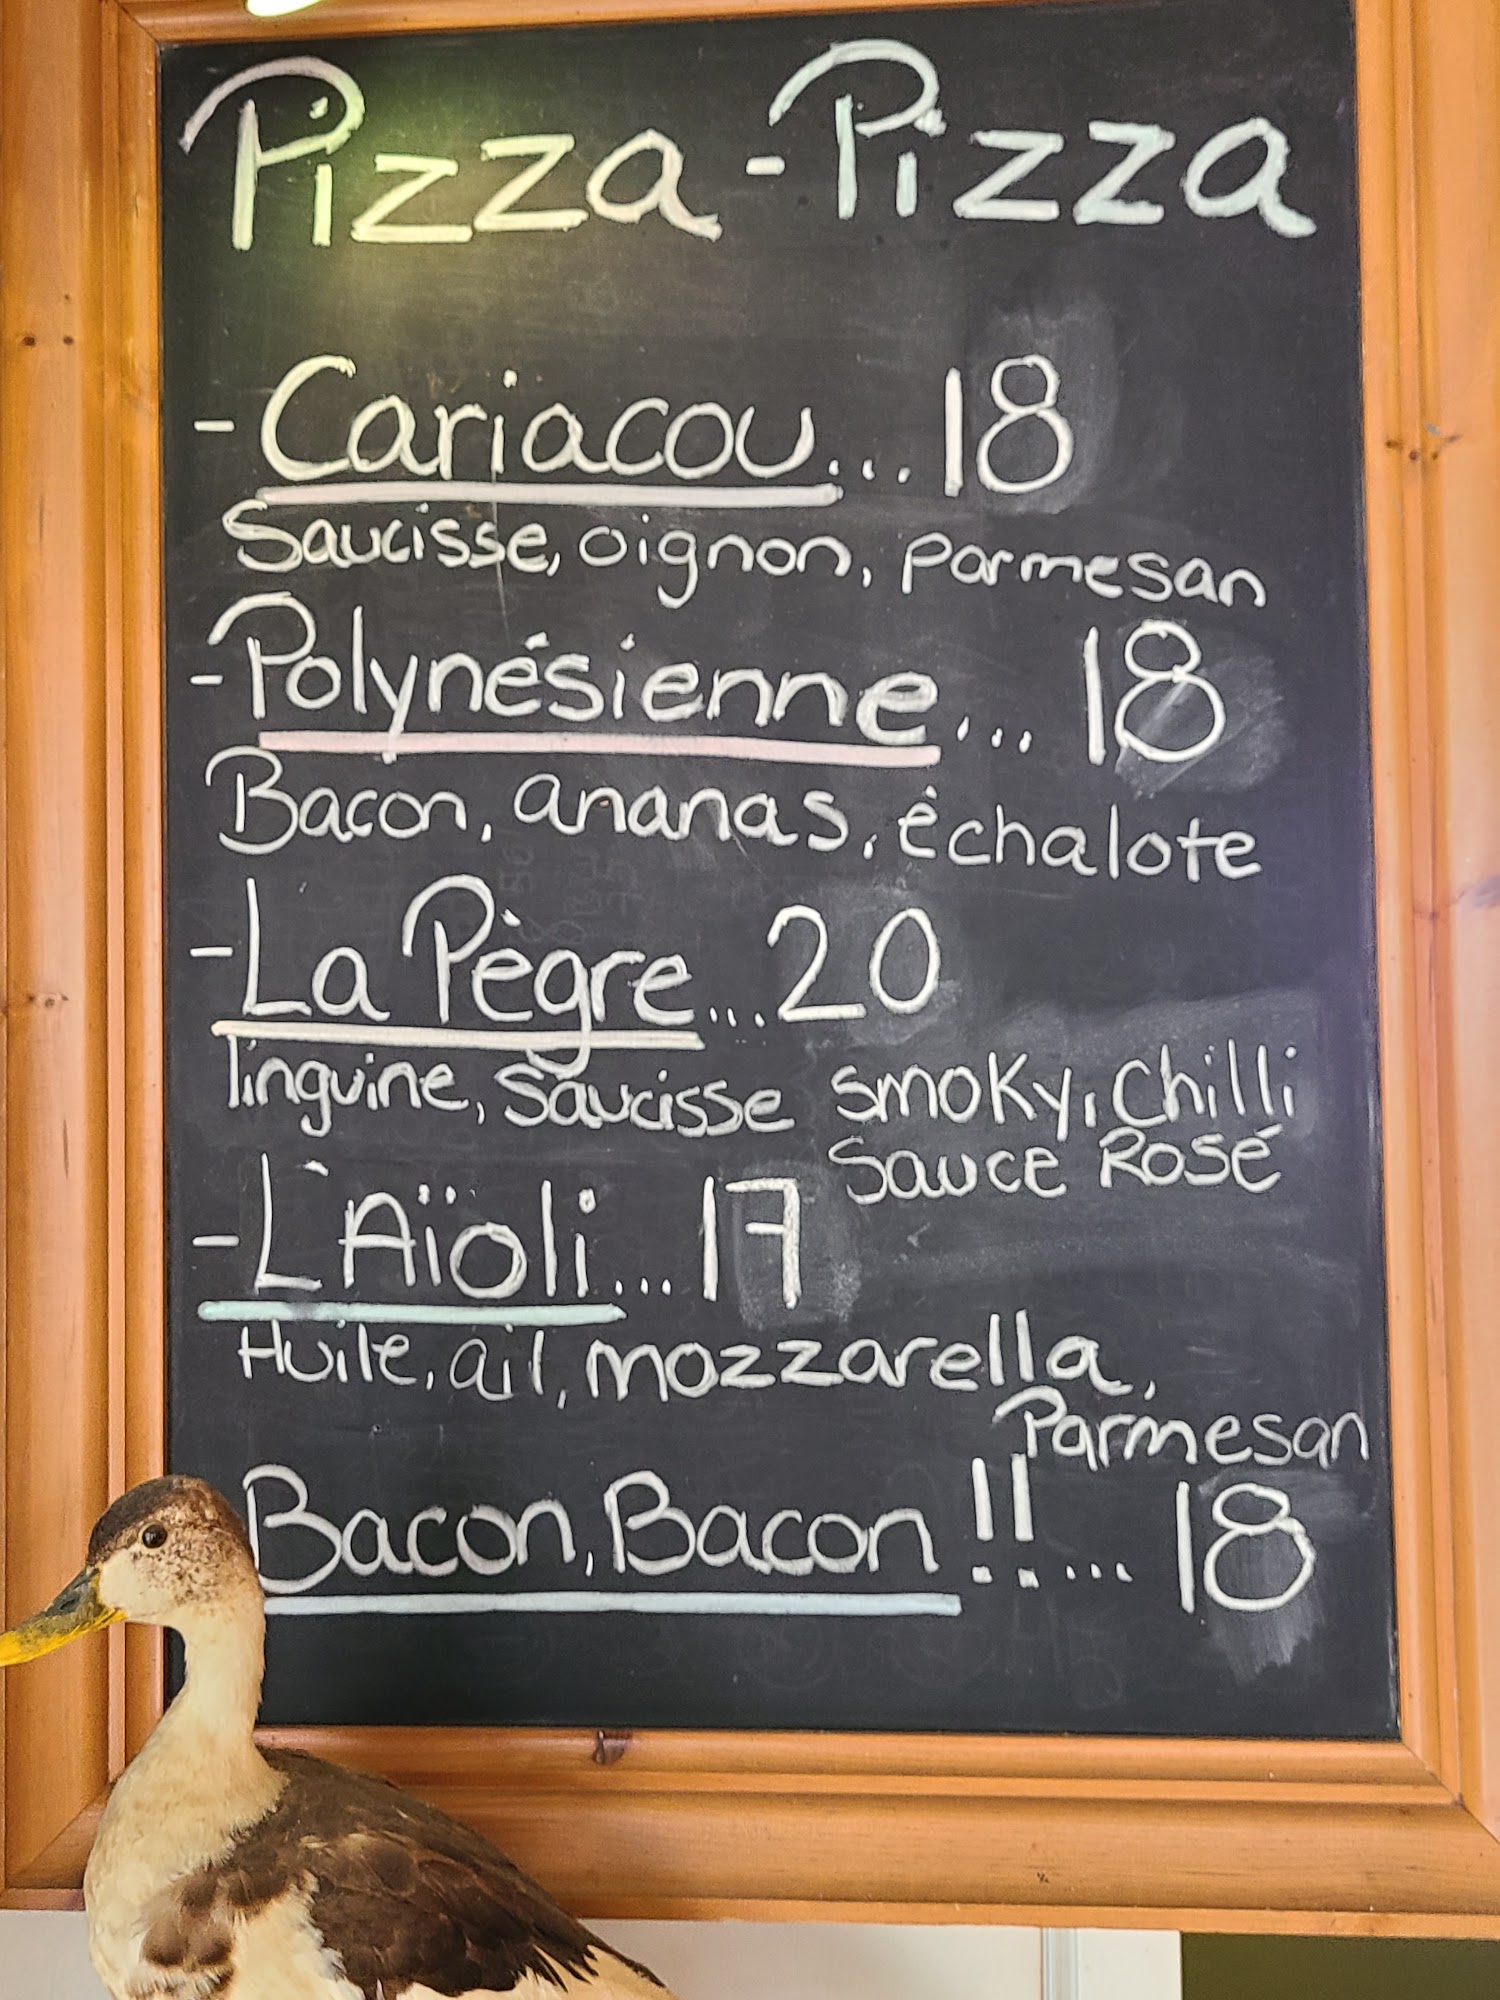 Pizza - Pizza
- Cariacou... 18
Saucisse, oignon, parmesan
- Polynésienne... 18
Bacon, ananas, échalote
- La Pègre... 20
linguine, saucisse smoky, chilli
sauce Rosé
- L'Aïoli... 17
Huile, ail, mozzarella,
Parmesan
Bacon, Bacon!!... 18